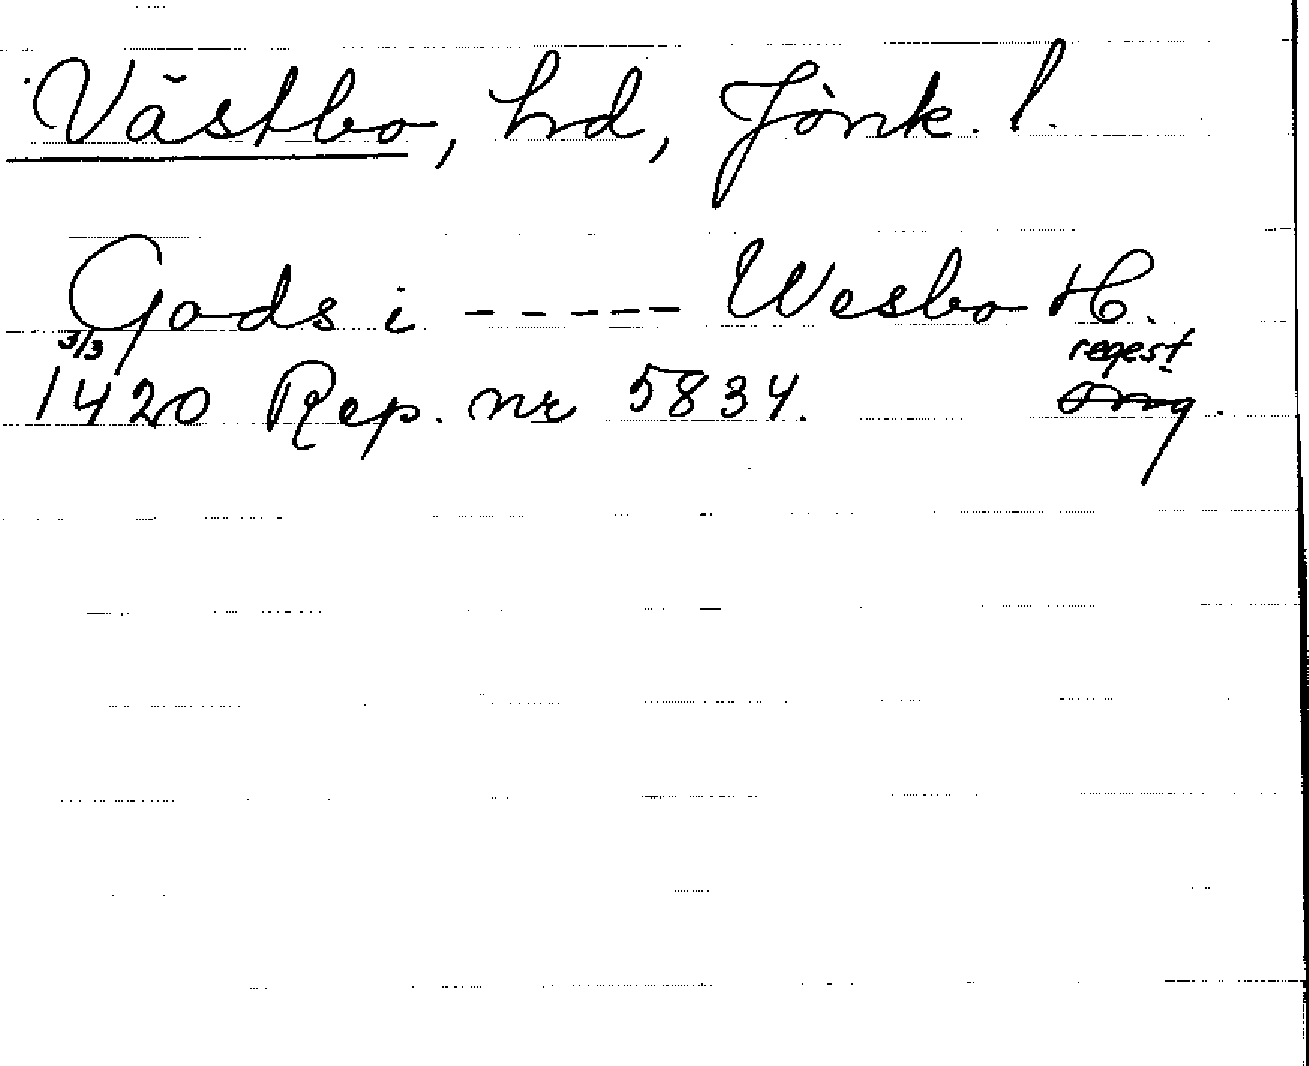 Västbo, hd, Jönk. l.
Gods i - - - - - Wesbo H.
3/3 regest
1420 Rep. nr 5834.